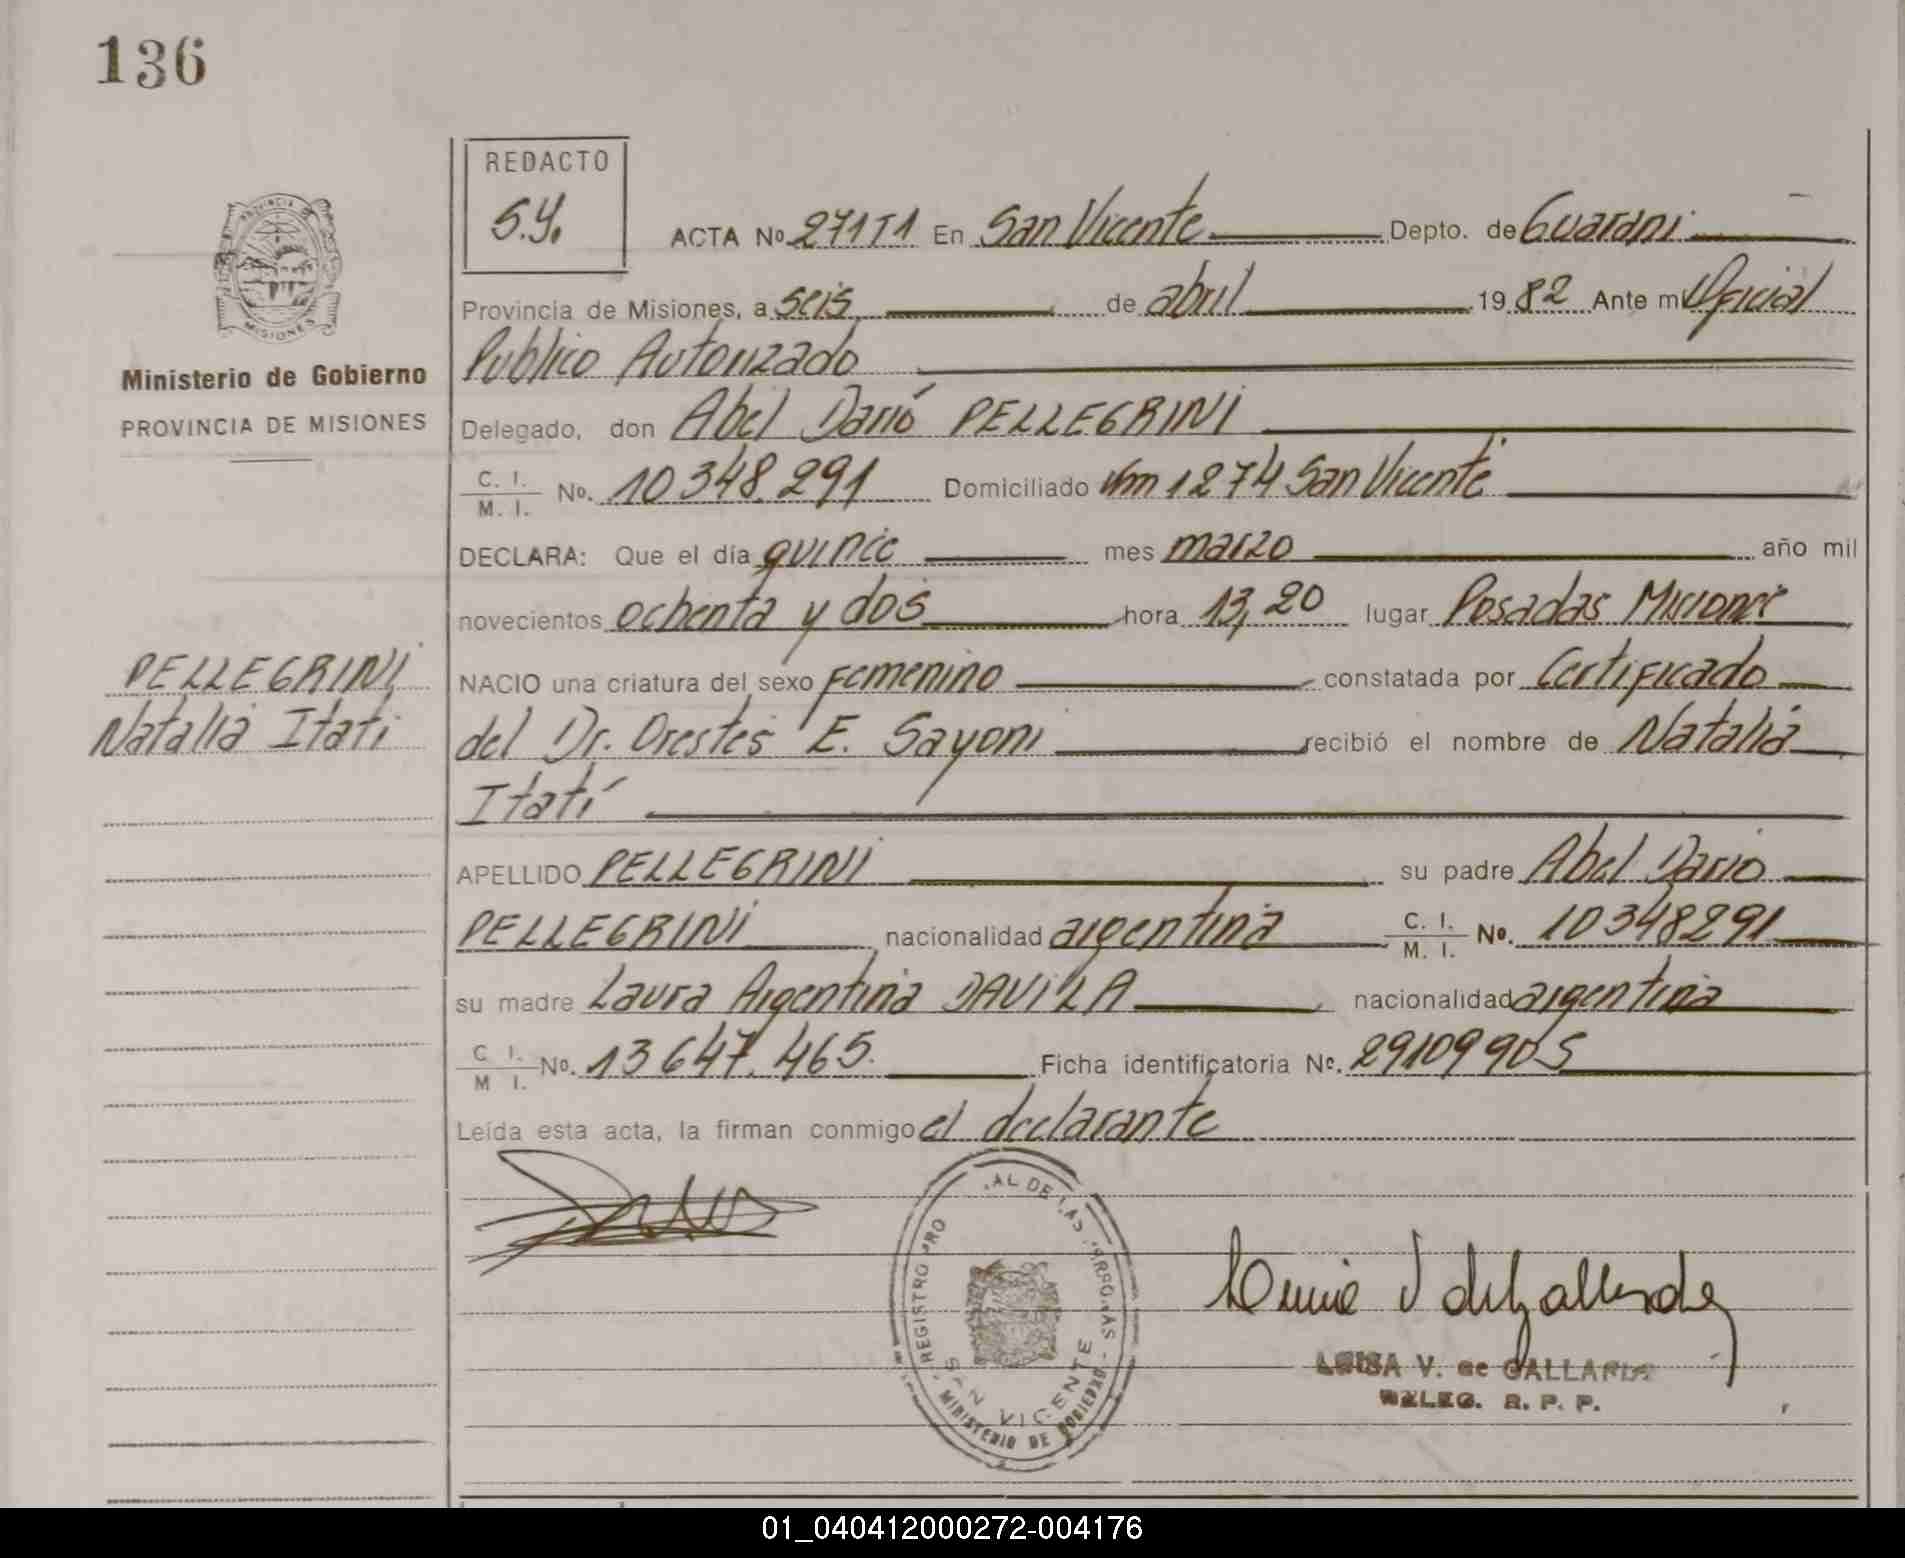 136
REDACTO
S.Y.
PROVINCIA DE
MISIONES
Ministerio de Gobierno
PROVINCIA DE MISIONES
PELLEGRINI
Natalia Itati
ACTA No. 271T1 En San Vicente Depto. de Guarani
Provincia de Misiones, a seis de abril 19 82 Ante mi Oficial
Publico Autorizado
Delegado, don Abel Darió PELLEGRINI
C. I. / M. I. No. 10348.291 Domiciliado Km 1274 San Vicente
DECLARA: Que el día quince mes marzo año mil
novecientos ochenta y dos hora 13,20 lugar Posadas Misiones
NACIO una criatura del sexo femenino constatada por Certificado
del Dr. Orestes E. Sayoni recibió el nombre de Natalia
Itatí
APELLIDO PELLEGRINI su padre Abel Dario
PELLEGRINI nacionalidad argentina C. I. / M. I. No. 10348291
su madre Laura Argentina DAVILA nacionalidad argentina
C I. / M I. No. 13647.465. Ficha identificatoria No.
Leída esta acta, la firman conmigo el declarante
REGISTRO PRO AL DE LAS PERSONAS
SAN VICENTE
MINISTERIO DE GOBIERNO
LUISA V. de
DELEG. R. P. P.
01_040412000272-004176